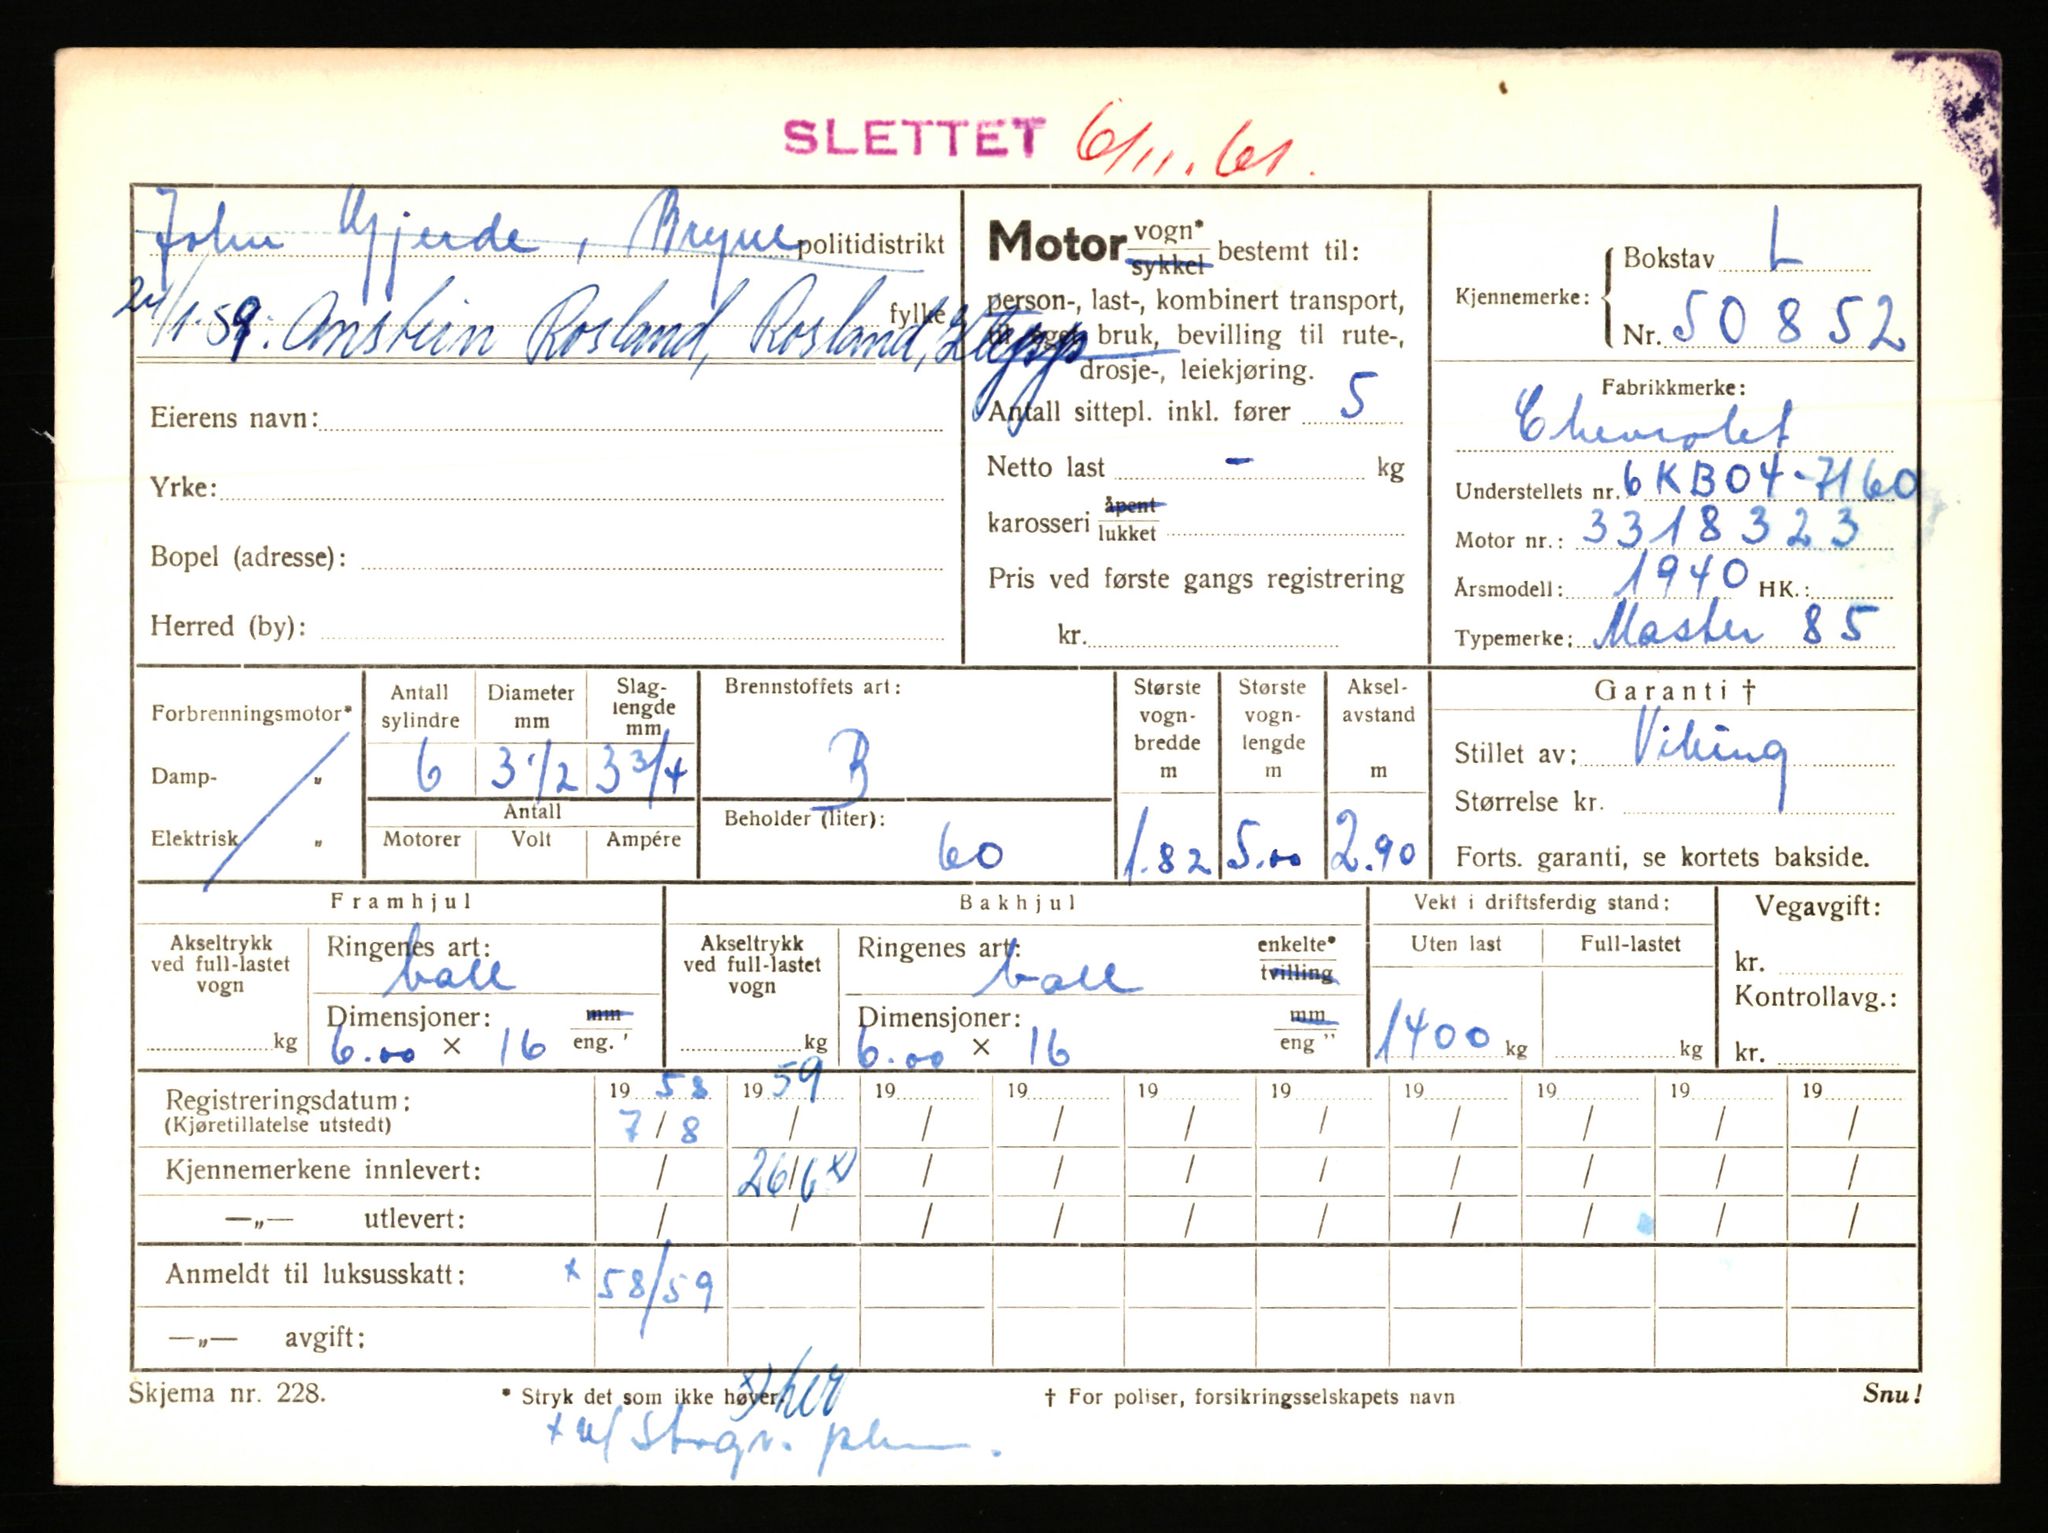 SLETTET 6/11.61.
John Gjerde, Bryne politidistrikt
24/1.59. Anstein Rosland, Rosland, Klepp fylke
Eierens navn:
Yrke:
Bopel (adresse):
Herred (by):
Motor vogn* sykkel bestemt til:
person-, last-, kombinert transport,
til eget bruk, bevilling til rute-,
drosje-, leiekjøring.
Antall sittepl. inkl. fører 5
Netto last - kg
karosseri åpent lukket
Pris ved første gangs registrering
kr.
Kjennemerke: Bokstav L
Nr. 50852
Fabrikkmerke:
Chevrolet
Understellets nr. 6KB04-7160
Motor nr.: 3318323
Årsmodell: 1940 HK.:
Typemerke: Master 85
Forbrenningsmotor*
Damp- „
Elektrisk „
Antall sylindre 6
Diameter mm 3 1/2
Slag-lengde mm 3 3/4
Antall
Motorer Volt Ampére
Brennstoffets art:
B
Beholder (liter):
60
Største vogn-bredde m 1.82
Største vogn-lengde m 5.00
Aksel-avstand m 2.90
Garanti †
Stillet av: Viking
Størrelse kr.
Forts. garanti, se kortets bakside.
Framhjul
Akseltrykk ved full-lastet vogn
kg
Ringenes art:
ball
Dimensjoner: mm
6.00 × 16 eng. '
Bakhjul
Akseltrykk ved full-lastet vogn
kg
Ringenes art: enkelte*
ball tvilling
Dimensjoner: mm
6.00 × 16 eng "
Vekt i driftsferdig stand:
Uten last Full-lastet
1400 kg kg
Vegavgift:
kr.
Kontrollavg.:
kr.
Registreringsdatum: 19 58 19 59 19 19 19 19 19 19 19 19
(Kjøretillatelse utstedt) 7/8 / / / / / / / / /
Kjennemerkene innlevert: / 26/6 x) / / / / / / / /
—„— utlevert: / / / / / / / / / /
Anmeldt til luksusskatt: x 58/59
—„— avgift:
Skjema nr. 228. * Stryk det som ikke høver. x) her † For poliser, forsikringsselskapets navn Snu!